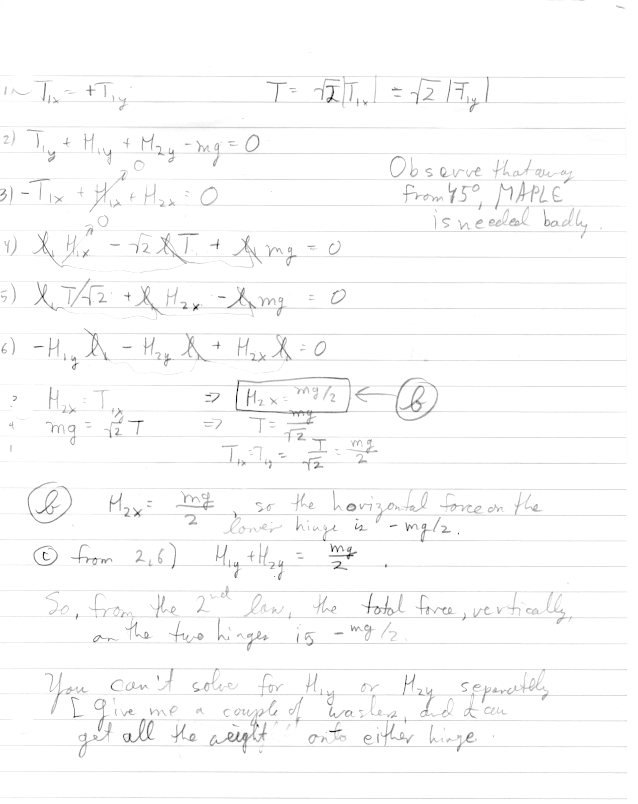 1~ T₁ₓ = +T₁y T = √2|T₁ₓ| = √2 |T₁y|
2) T₁y + H₁y + H₂y - mg = 0
Observe that away
3) -T₁ₓ + H₁ₓ + H₂ₓ = 0 0
from 45°, MAPLE
is needed badly.
4) h H₁ₓ - √2 h T + h mg = 0 0
5) h T/√2 + h H₂ₓ - h mg = 0
6) -H₁y h - H₂y h + H₂ₓ h = 0
3 H₂ₓ = T₁ₓ ⇒ H₂ₓ = mg/2 ← b
4 mg = √2 T ⇒ T = mg/√2
1 T₁ₓ = T₁y = T/√2 = mg/2
b H₂ₓ = mg/2, so the horizontal force on the
lower hinge is -mg/2.
c from 2,6) H₁y + H₂y = mg/2.
So, from the 2nd law, the total force, vertically,
on the two hinges is -mg/2.
You can't solve for H₁y or H₂y separately
[ Give me a couple of washers, and I can
get all the "weight" onto either hinge.